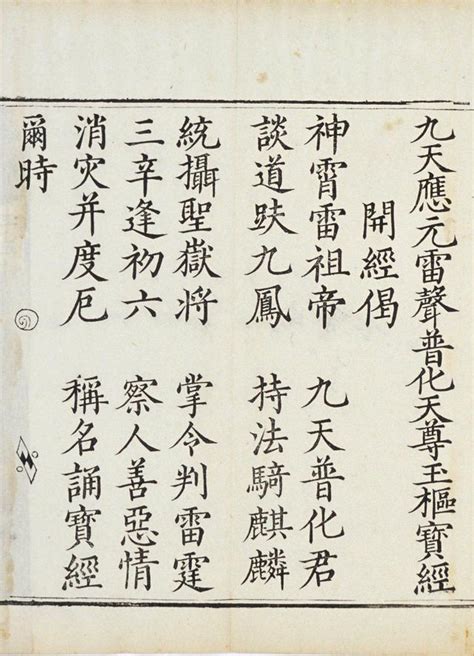 九天應元雷聲普化天尊玉樞寶經
開經偈
神霄雷祖帝　九天普化君
談道趺九鳳　持法騎麒麟
統攝聖嶽將　掌令判雷霆
三辛逢初六　察人善惡情
消灾并度厄　稱名誦寶經
爾時